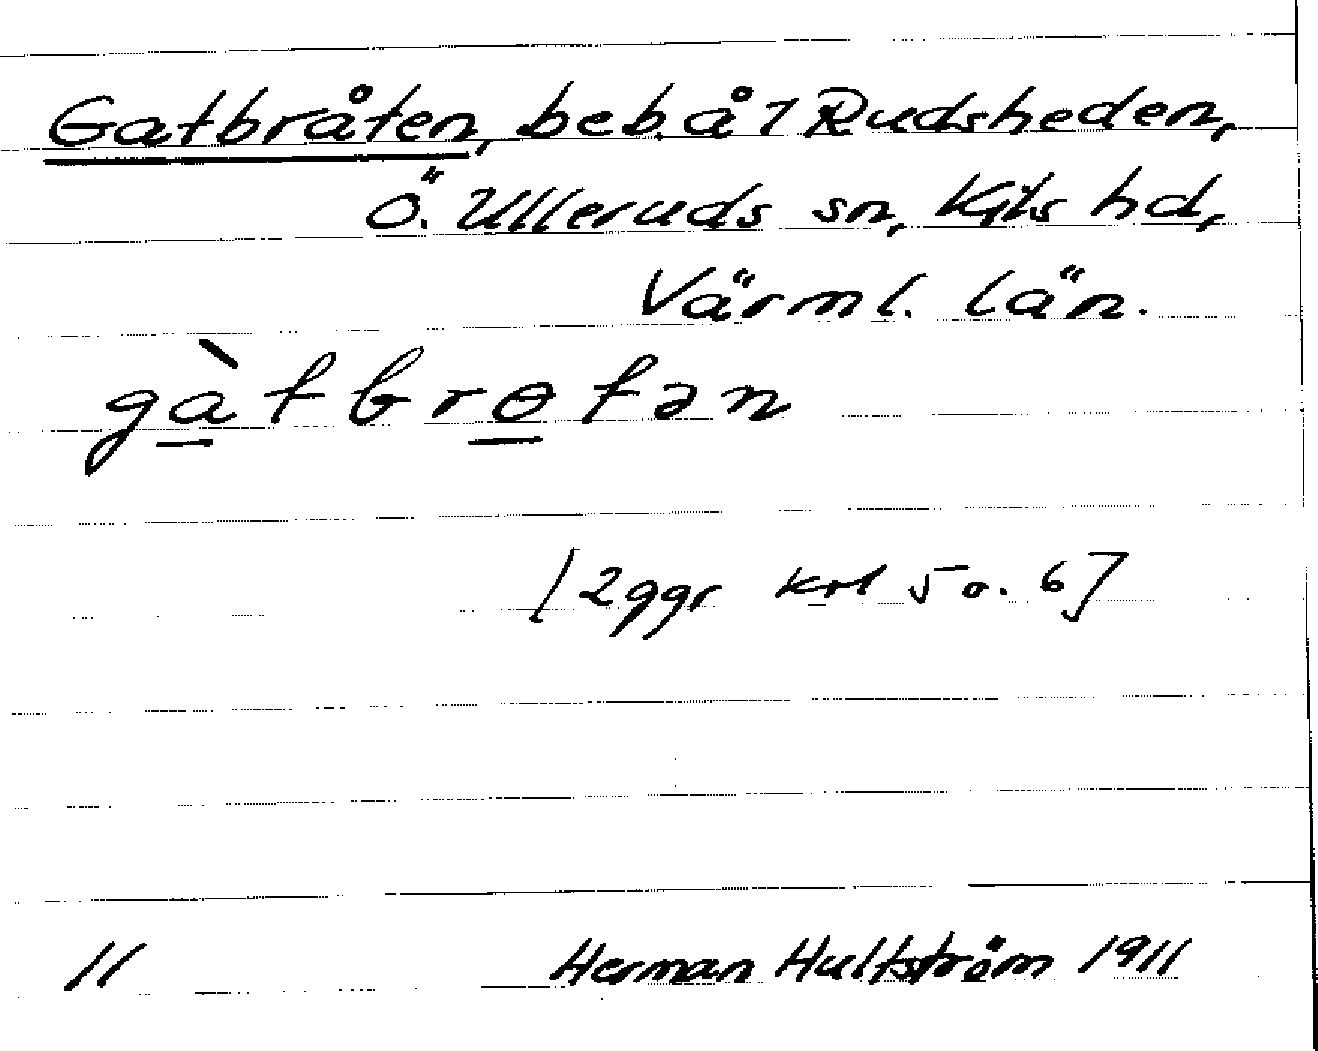 Gatbråten, beb. å 1 Rudsheden,
Ö. Ulleruds sn, Kils hd,
Värml. län.
gàtbrotən
[2ggr krl 5 o. 6]
11 Herman Hultström 1911